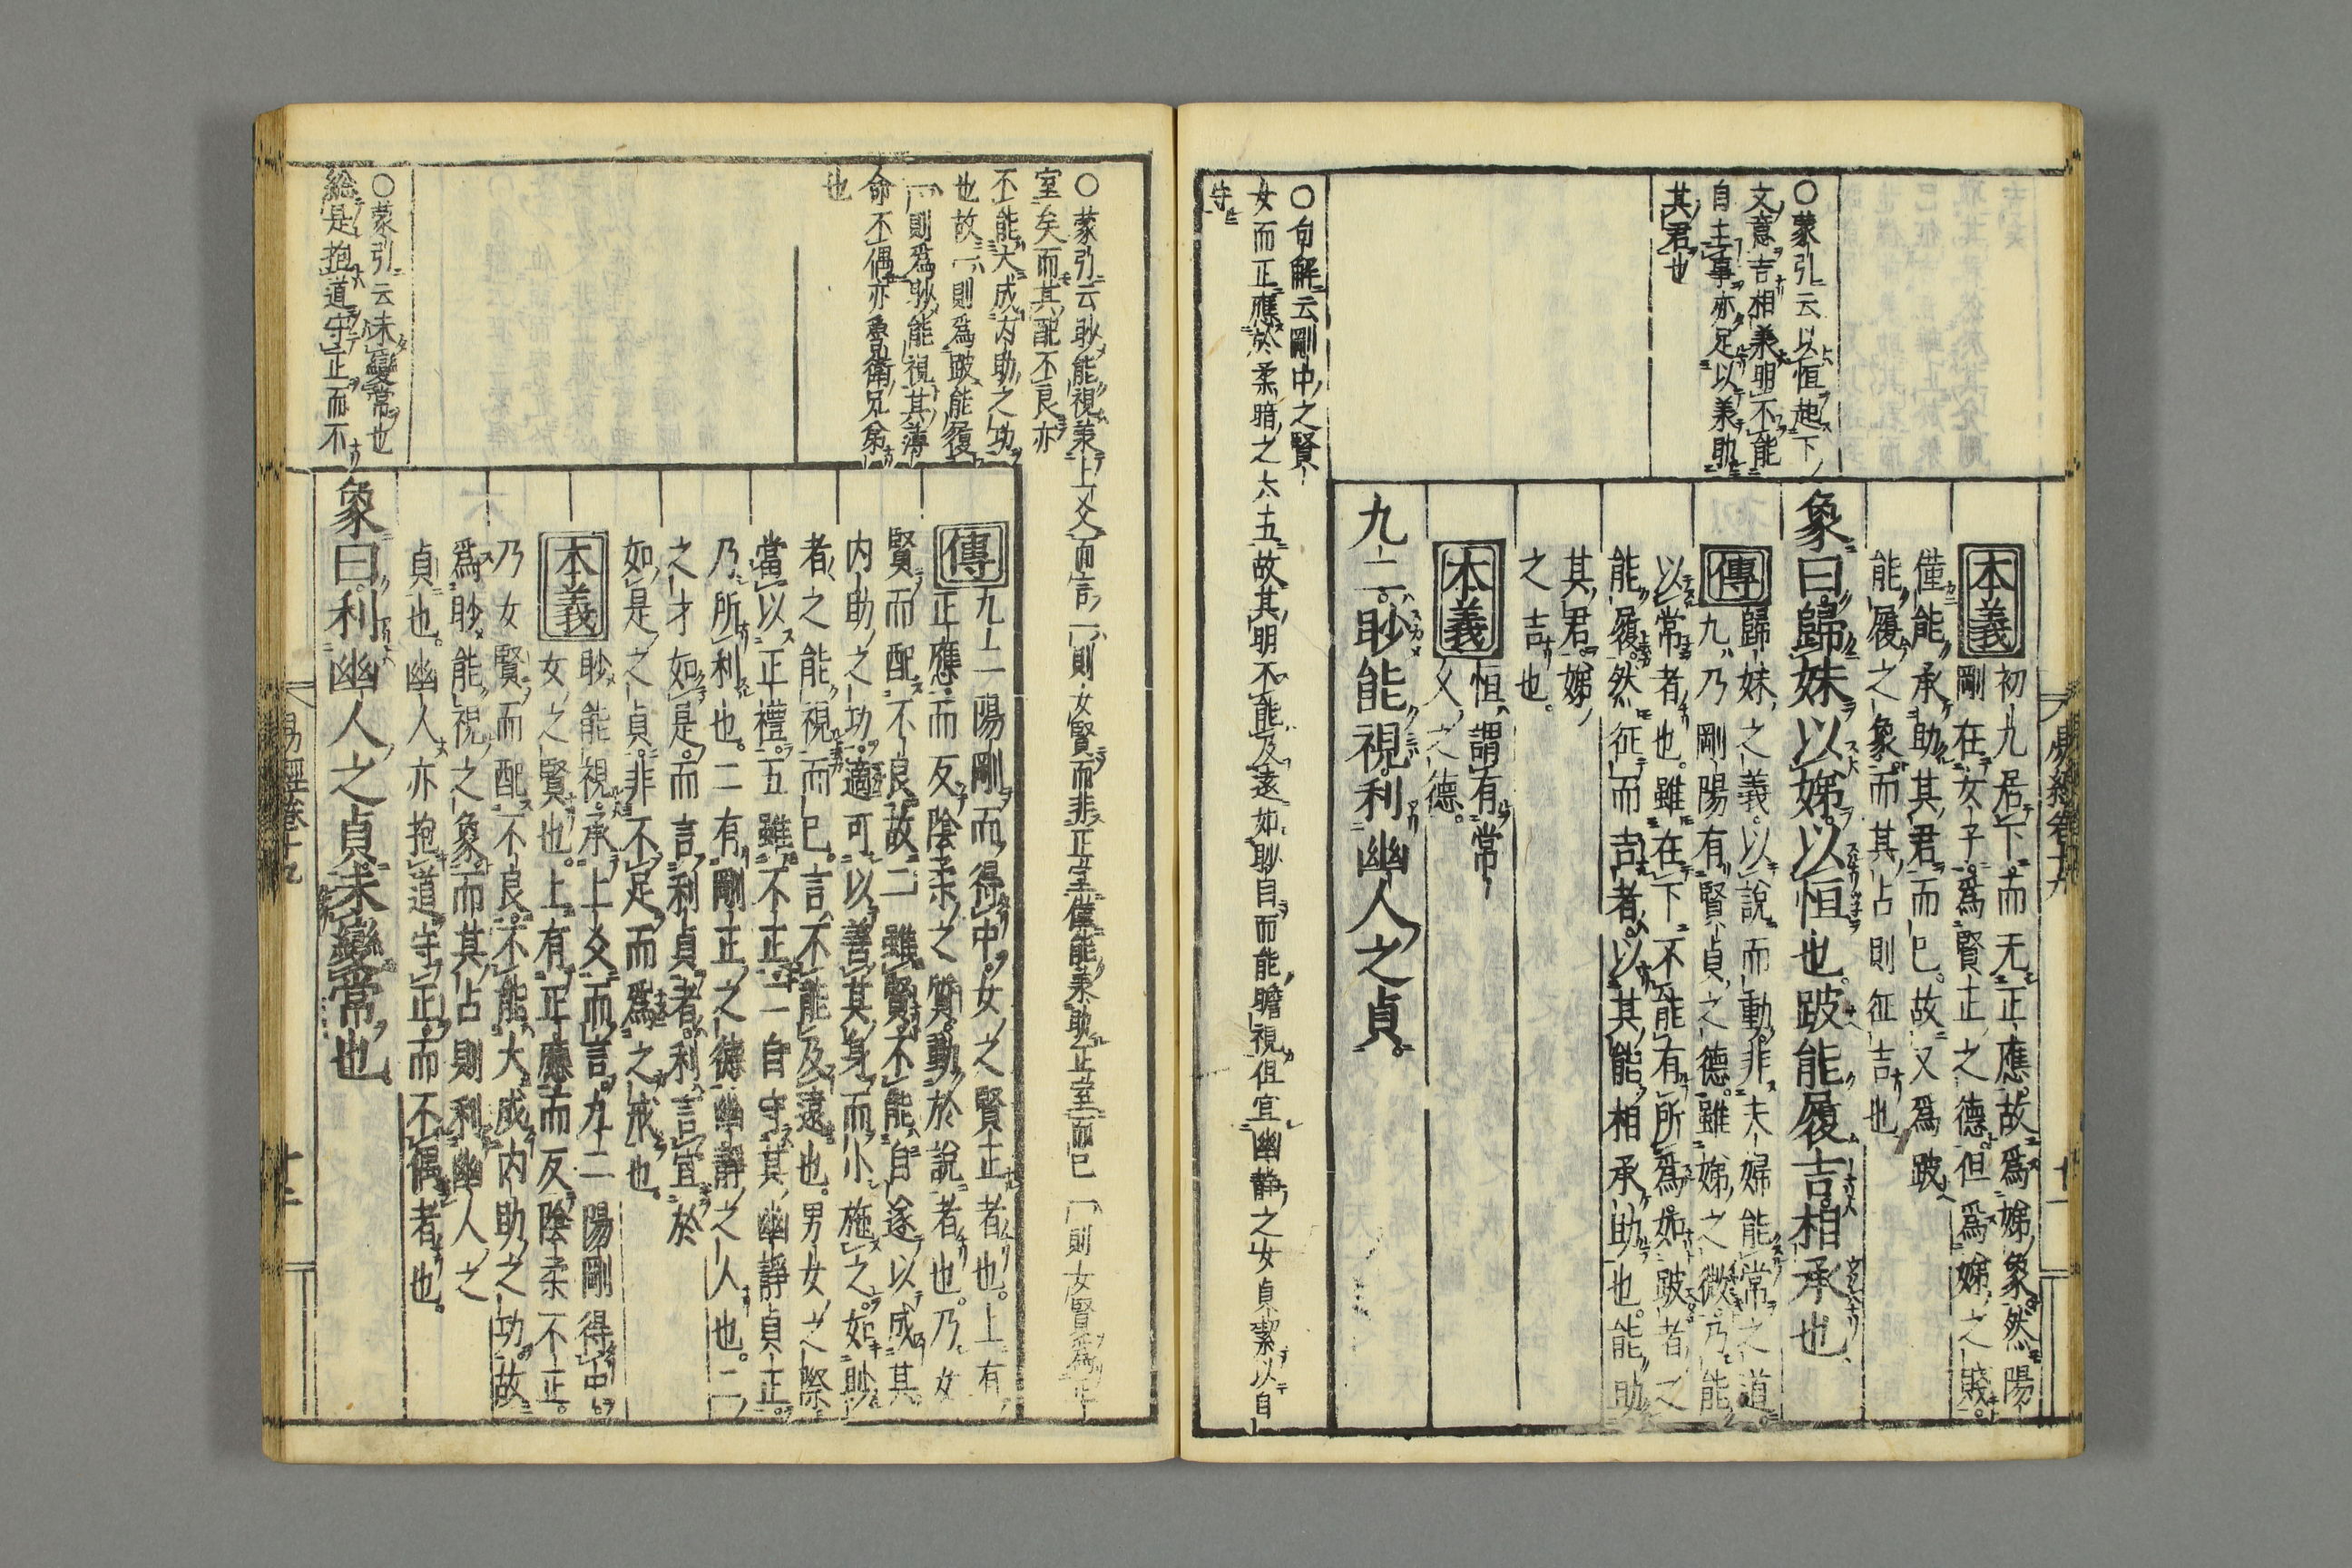 本義
初九居下而无正應故爲娣象然陽
剛在女子爲賢正之德但爲娣之賤
僅能承助其君而已故又爲跛
能履之象而其占則征吉也
象曰歸妹以娣以恒也跛能履吉相承也
傳
歸妹之義以說而動非夫婦能常之道
九乃剛陽有賢貞之德雖娣之微乃能
以常者也雖在下不能有所爲如跛者之
能履然征而吉者以其能相承助也能助
其君娣
之吉也
本義
恒謂有常
久之德
九二眇能視利幽人之貞
○蒙引云以恒也下
文意吉相義明不能
自主事亦足以義助
其君也
○句解云剛中之賢
女而正應於柔暗之六五故其明不能及遠如眇目而能瞻視但宜幽静之女貞潔以自
守
○蒙引云眇能視兼上爻而言一則女賢而非正室僅能兼助正室而已一則女賢爲正
室矣而其配不良亦
不能大成内助之功
也故一則爲跛能履
一則爲眇能視其薄
命不偶亦魯衛兄弟
也
傳
九二陽剛而得中女之賢正者也上有
正應而反陰柔之質動於說者也乃女
賢而配不良故二雖賢不能自遂以成其
内助之功適可以善其身而小施之如眇
者之能視而已言不能及遠也男女之際
當以正禮五雖不正二自守其幽靜貞正
乃所利也二有剛正之德幽靜之人也二
之才如是而言利貞者利言宜於
如是之貞非不足而爲之戒也
本義
眇能視承上爻而言九二陽剛得中
女之賢也上有正應而反陰柔不正
乃女賢而配不良不能大成内助之功故
爲眇能視之象而其占則利幽人之
貞也幽人亦抱道守正而不偶者也
象曰利幽人之貞未變常也
○蒙引云未變常也
総是抱道守正而不
易經卷十九
十二